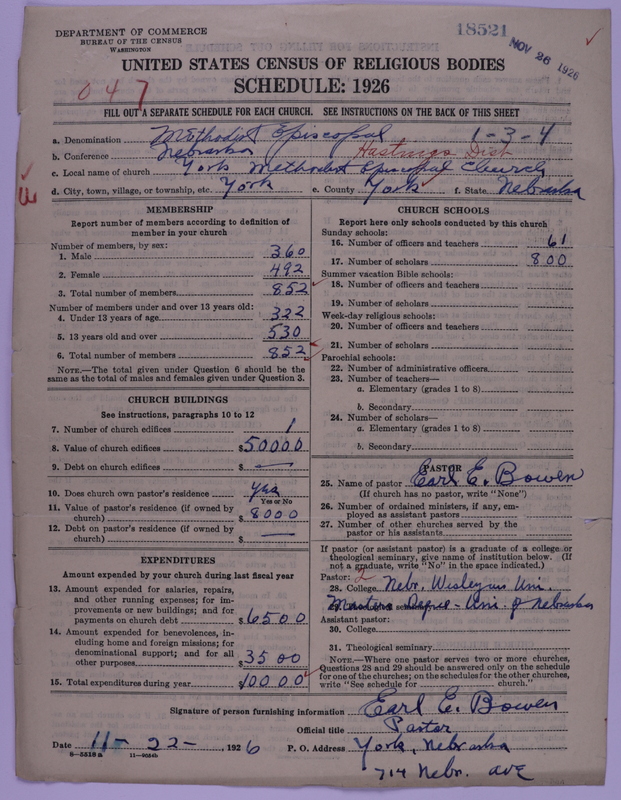 DEPARTMENT OF COMMERCE
BUREAU OF THE CENSUS
WASHINGTON
18521
NOV 26 1926
UNITED STATES CENSUS OF RELIGIOUS BODIES
SCHEDULE: 1926
047
FILL OUT A SEPARATE SCHEDULE FOR EACH CHURCH. SEE INSTRUCTIONS ON THE BACK OF THIS SHEET
a. Denomination Methodist Episcopal 1-3-4
b. Conference Nebraska Hastings Dist
c. Local name of church York Methodist Episcopal Church
d. City, town, village, or township, etc. York e. County York f. State Nebraska
MEMBERSHIP
Report number of members according to definition of
member in your church
Number of members, by sex:
1. Male 360
2. Female 492
3. Total number of members 852
Number of members under and over 13 years old:
4. Under 13 years of age 322
5. 13 years old and over 530
6. Total number of members 852
NOTE.—The total given under Question 6 should be
same as the total of males and females given under Question 3.
CHURCH BUILDINGS
See instructions, paragraphs 10 to 12
7. Number of church edifices 1
8. Value of church edifices $50000
9. Debt on church edifices $ —
10. Does church own pastor's residence Yes
Yes or No
11. Value of pastor's residence (if owned by
church) $8000
12. Debt on pastor's residence (if owned by
church) $ —
EXPENDITURES
Amount expended by your church during last fiscal year
13. Amount expended for salaries, repairs,
and other running expenses; for im-
provements or new buildings; and for
payments on church debt $6500
14. Amount expended for benevolences, in-
cluding home and foreign missions; for
denominational support; and for all
other purposes $3500
15. Total expenditures during year $10000
CHURCH SCHOOLS
Report here only schools conducted by this church
Sunday schools:
16. Number of officers and teachers 61
17. Number of scholars 800
Summer vacation Bible schools:
18. Number of officers and teachers
19. Number of scholars
Week-day religious schools:
20. Number of officers and teachers
21. Number of scholars
Parochial schools:
22. Number of administrative officers
23. Number of teachers—
a. Elementary (grades 1 to 8)
b. Secondary
24. Number of scholars—
a. Elementary (grades 1 to 8)
b. Secondary
PASTOR
25. Name of pastor Earl E. Bowen
(If church has no pastor, write "None")
26. Number of ordained ministers, if any, em-
ployed as assistant pastors
27. Number of other churches served by the
pastor or his assistants
If pastor (or assistant pastor) is a graduate of a college or
theological seminary, give name of institution below. (If
not a graduate, write "No" in the space indicated.)
Pastor: 2
28. College Nebr. Wesleyan Uni.
Masters Degree - Uni. of Nebraska
Assistant pastor:
30. College
31. Theological seminary
NOTE.—Where one pastor serves two or more churches,
Questions 28 and 29 should be answered only on the schedule
for one of the churches; on the schedules for the other churches,
write "See schedule for church."
Signature of person furnishing information Earl E. Bowen
Official title Pastor
Date 11-22-, 1926 P. O. Address York, Nebraska
8—5518 a
714 Nebr. ave